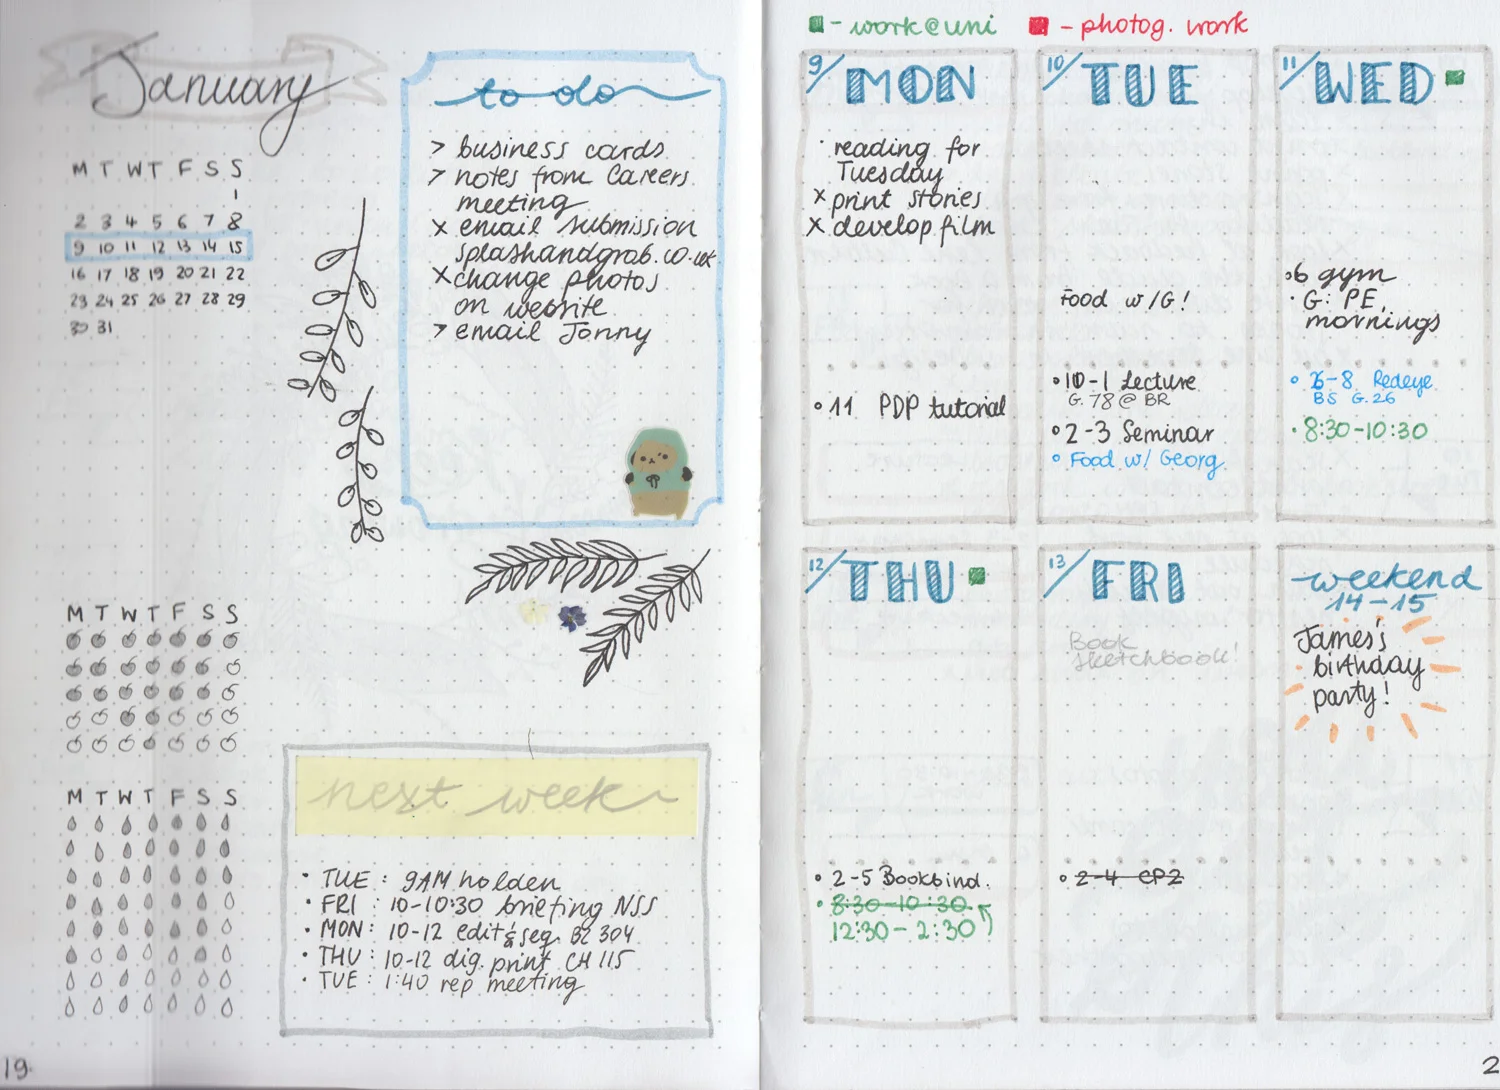 January
M T W T F S S
1
2 3 4 5 6 7 8
9 10 11 12 13 14 15
16 17 18 19 20 21 22
23 24 25 26 27 28 29
30 31
to do
> business cards
> notes from Careers
meeting
x email submission
splashandgrab.co.uk
x change photos
on website
> email Jonny
M T W T F S S
M T W T F S S
next week
• TUE : 9AM holden
• FRI : 10-10:30 briefing NSS
• MON: 10-12 edit & seq. B2 304
• THU: 10-12 dig. print CH 115
• TUE: 1:40 rep meeting
19
- work@uni - photog. work
9/ MON
• reading for
Tuesday
x print stories
x develop film
• 11 PDP tutorial
10/ TUE
Food w/G!
• 10-1 Lecture
G.78 @ BR
• 2-3 Seminar
• Food w/ Georg.
11/ WED
6 gym
• G: PE,
mornings
• 6-8 Redeye
BS G.26
• 8:30-10:30
12/ THU
• 2-5 Bookbind.
• 8:30-10:30
12:30-2:30
13/ FRI
Book
sketchbook!
• 2-4 CP2
weekend
14-15
James's
birthday
party!
2